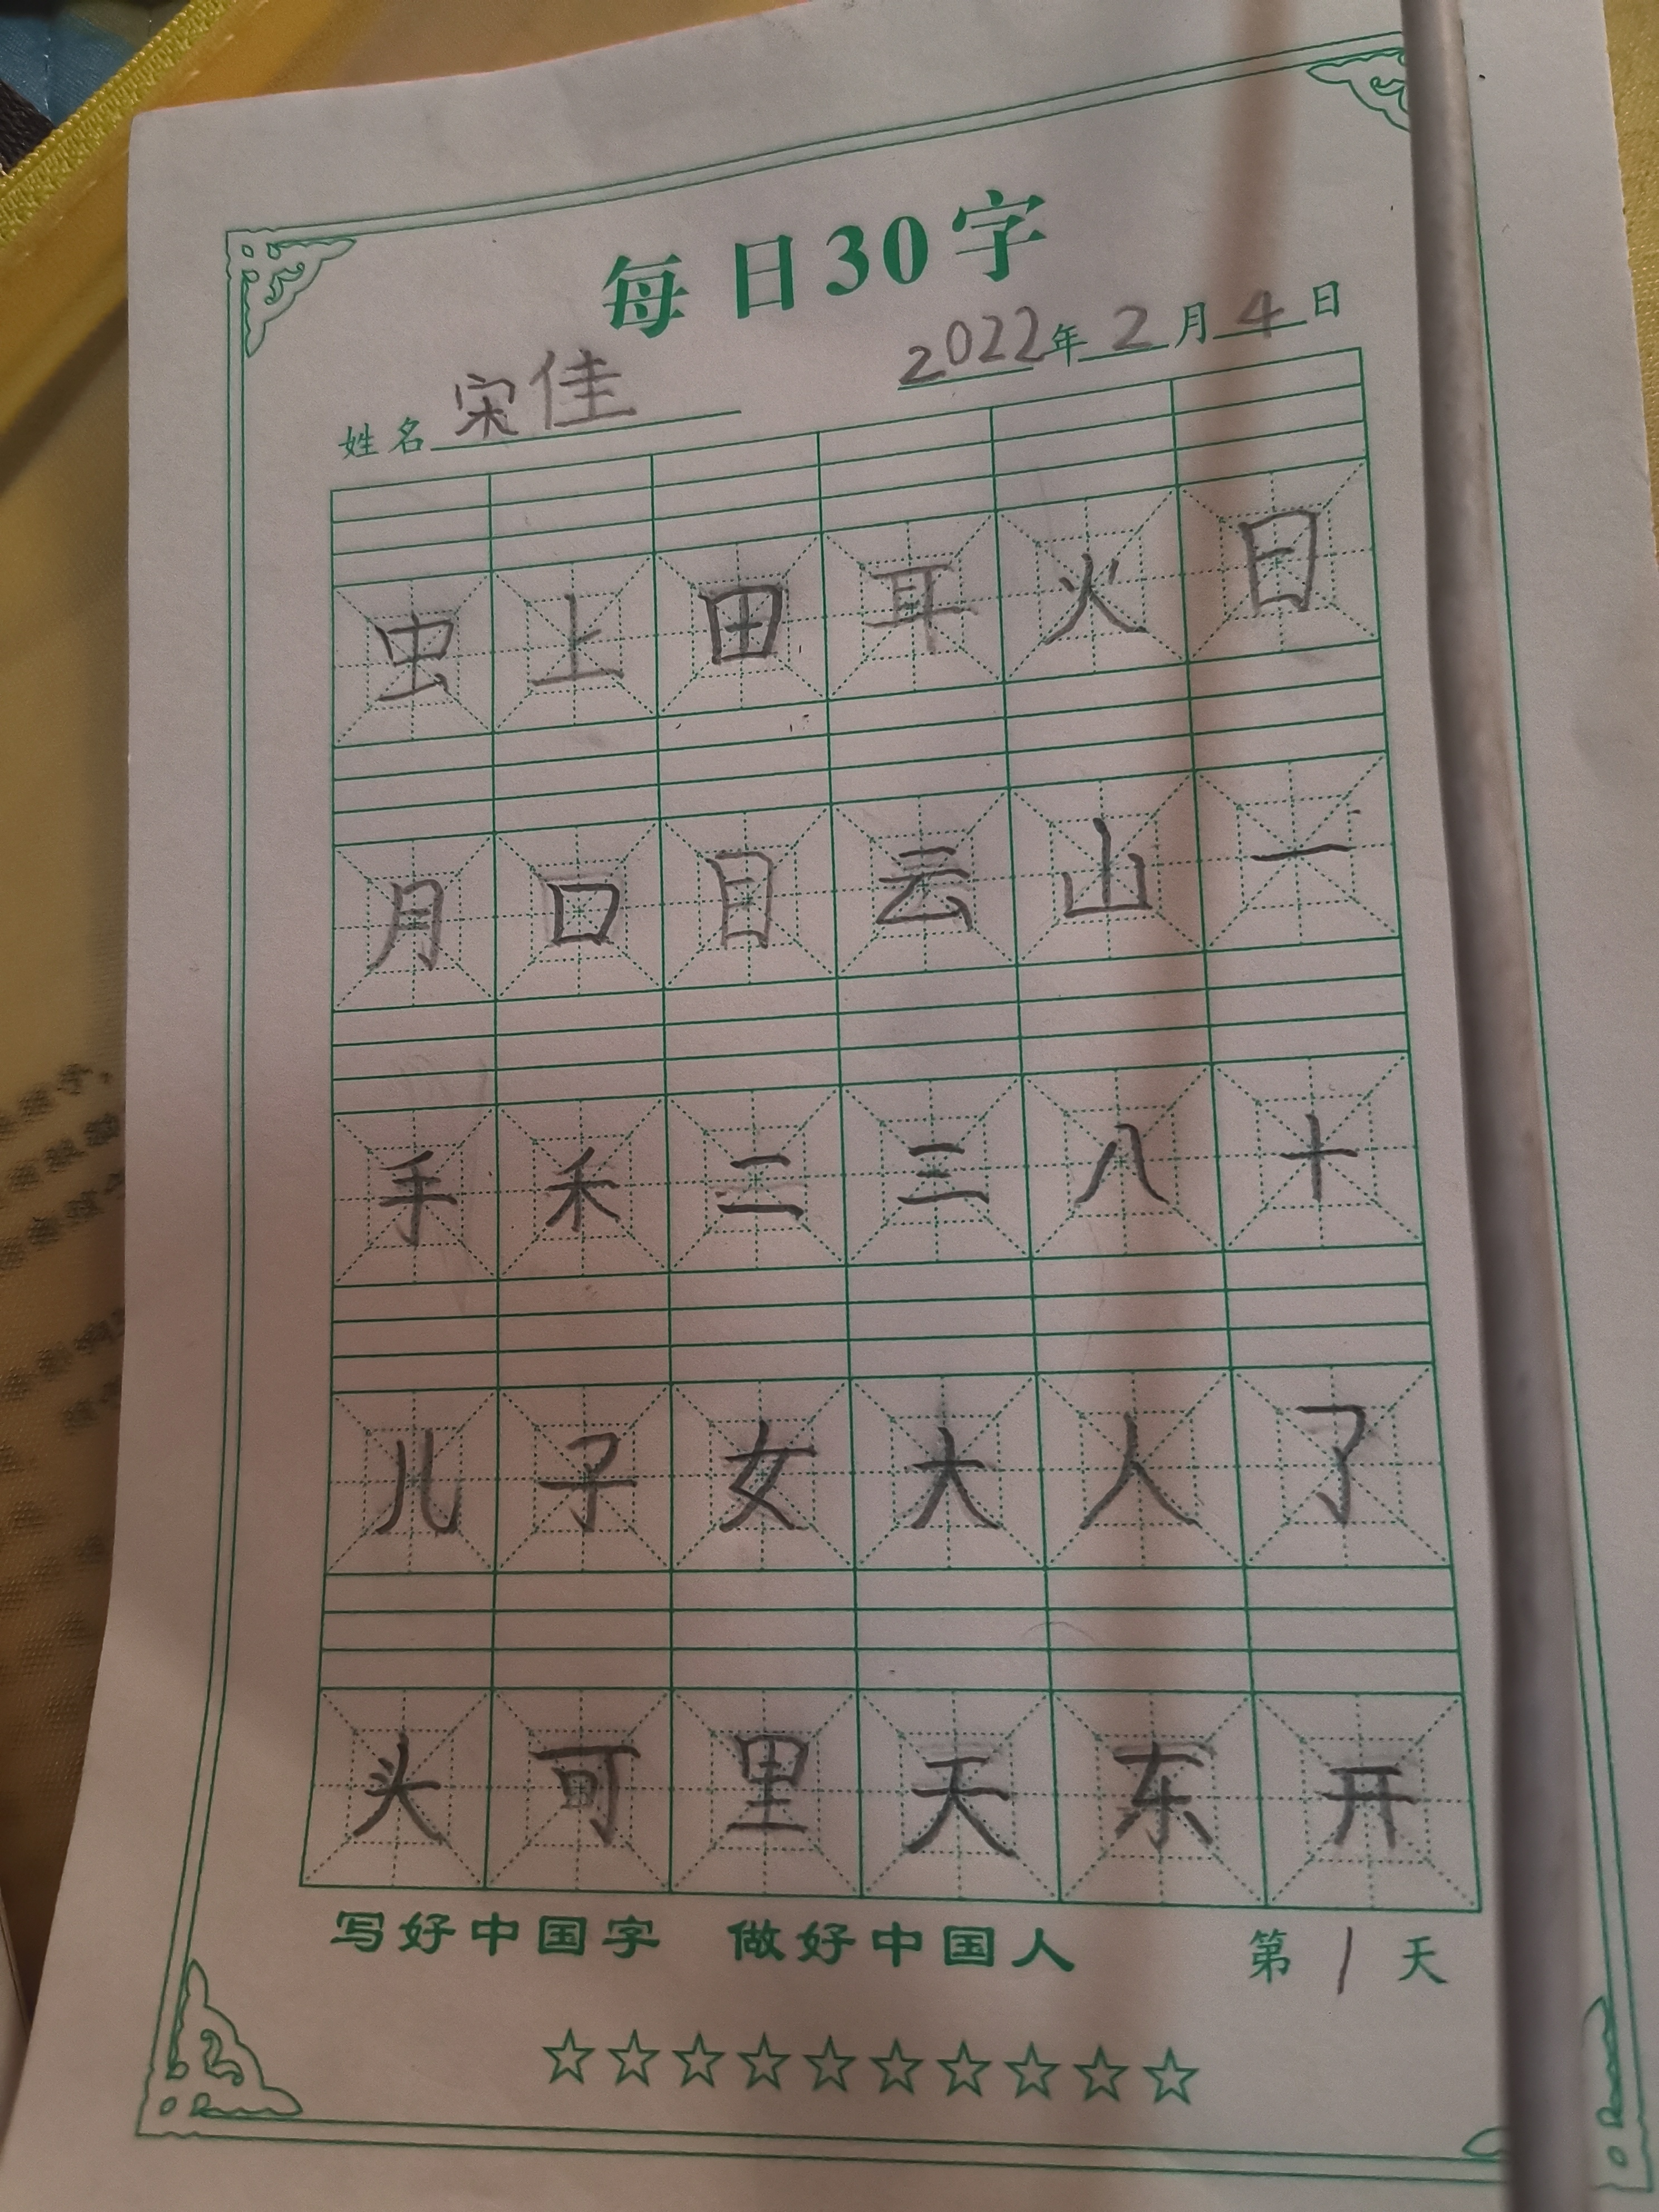 每日30字
姓名 宋佳 2022年2月4日
虫 上 田 耳 火 日
月 口 目 云 山 一
手 禾 二 三 八 十
儿 子 女 大 人 了
头 可 里 天 东 开
写好中国字 做好中国人 第1天